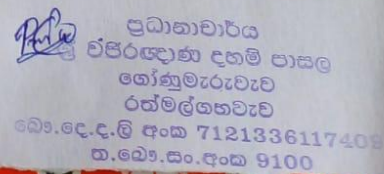 ප්‍රධානාචාර්ය
වජිරඥාණ දහම් පාසල
ගෝණුමැරුවැව
රත්මල්ගහවැව
බෞ.දෙ.ද.ලි අංක 7121336117409
ත.බෞ.සං.අංක 9100